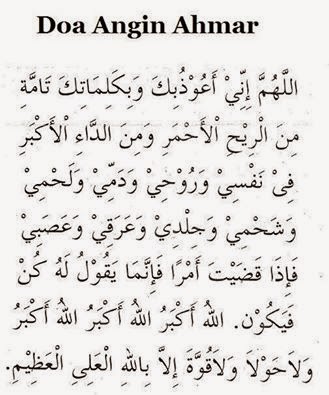 Doa Angin Ahmar
اللَّهُمَّ إِنِّيْ أَعُوْذُبِكَ وَبِكَلِمَاتِكَ تَامَّةِ
مِنَ الْرِيْحِ الْأَحْمَرِ وَمِنَ الدَّاءِ الْأَكْبَرِ
فِىْ نَفْسِيْ وَرُوْحِيْ وَدَمِّيْ وَلَحْمِيْ
وَشَحْمِيْ وَجِلْدِيْ وَعَرَقِيْ وَعَصَبِيْ
فَإِذَا قَضَيْتَ أَمْرًا فَإِنَّمَا يَقُوْلُ لَهُ كُنْ
فَيَكُوْن. اللهُ أَكْبَرُ اللهُ أَكْبَرُ اللهُ أَكْبَرُ
وَلاَحَوْلاَ وَلاَقُوَّةَ إِلاَّ بِاللهِ الْعَلِى الْعَظِيْمِ.